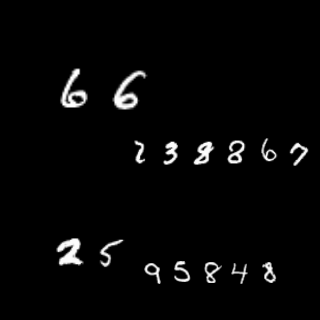 66
238867
25
95848